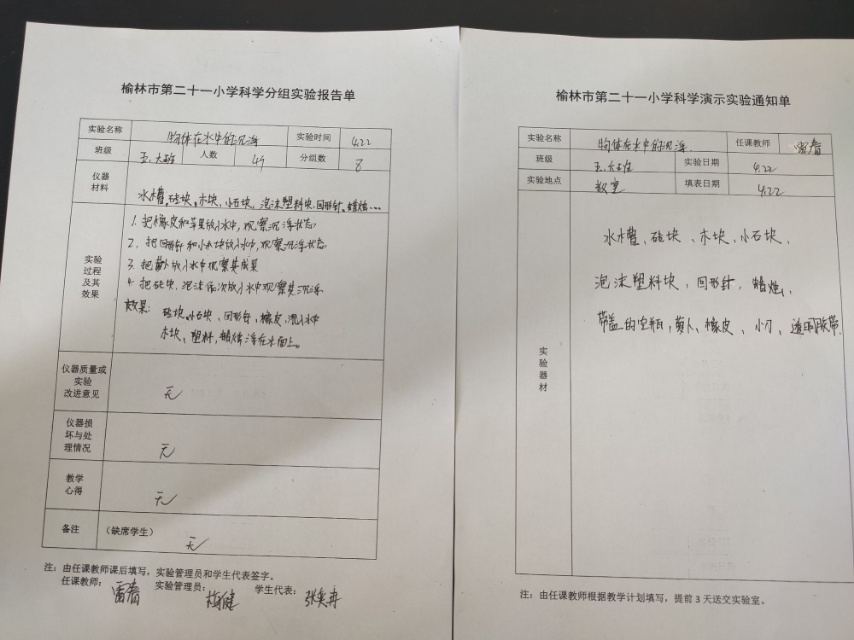 榆林市第二十一小学科学分组实验报告单
实验名称 物体在水中的沉浮 实验时间 4.22
班级 五. 人数 49 分组数 8
仪器
材料
水槽、砖块、木块、小石块、泡沫塑料块、回形针、蜡烛…
实验
过程
及其
效果
1. 把橡皮和苹果放入水中,观察沉浮状态
2. 把回形针和小木块放入水中,观察沉浮状态
3. 把萝卜放入水中观察其成果
4. 把砖块、泡沫依次放入水中观察其沉浮
效果: 砖块、小石块、回形针、橡皮、沉入水中
木块、塑料、蜡烛浮在水面上。
仪器质量或
实验
改进意见
无
仪器损
坏与处
理情况
无
教学
心得
无
备注 (缺席学生) 无
注:由任课教师课后填写,实验管理员和学生代表签字。
任课教师: 实验管理员: 学生代表:
榆林市第二十一小学科学演示实验通知单
实验名称 物体在水中的沉浮 任课教师
班级 五. 实验日期 4.22
实验地点 教室 填表日期 4.22
实验器材
水槽、砖块、木块、小石块、
泡沫塑料块、回形针、蜡烛、
带盖的空瓶、萝卜、橡皮、小刀、透明胶带
注:由任课教师根据教学计划填写,提前3天送交实验室。